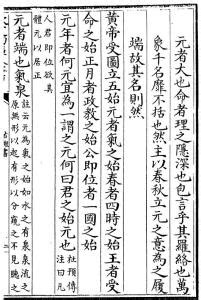 元者大也命者理之隱深也包言乎其羅絡也萬
象千名靡不括也然主以春秋立元之意為之履
端故其名則然
黃帝受圖立五始元者氣之始春者四時之始王者受
命之始正月者政教之始公即位者一國之始
元年者何元宜為一謂之元何曰君之始元也 杜預傳注曰凡
人君即位欲其體元以居正
元者端也氣泉 註云元為氣之始如水之有泉泉流之原無形以起有形以分窺之不見聽之